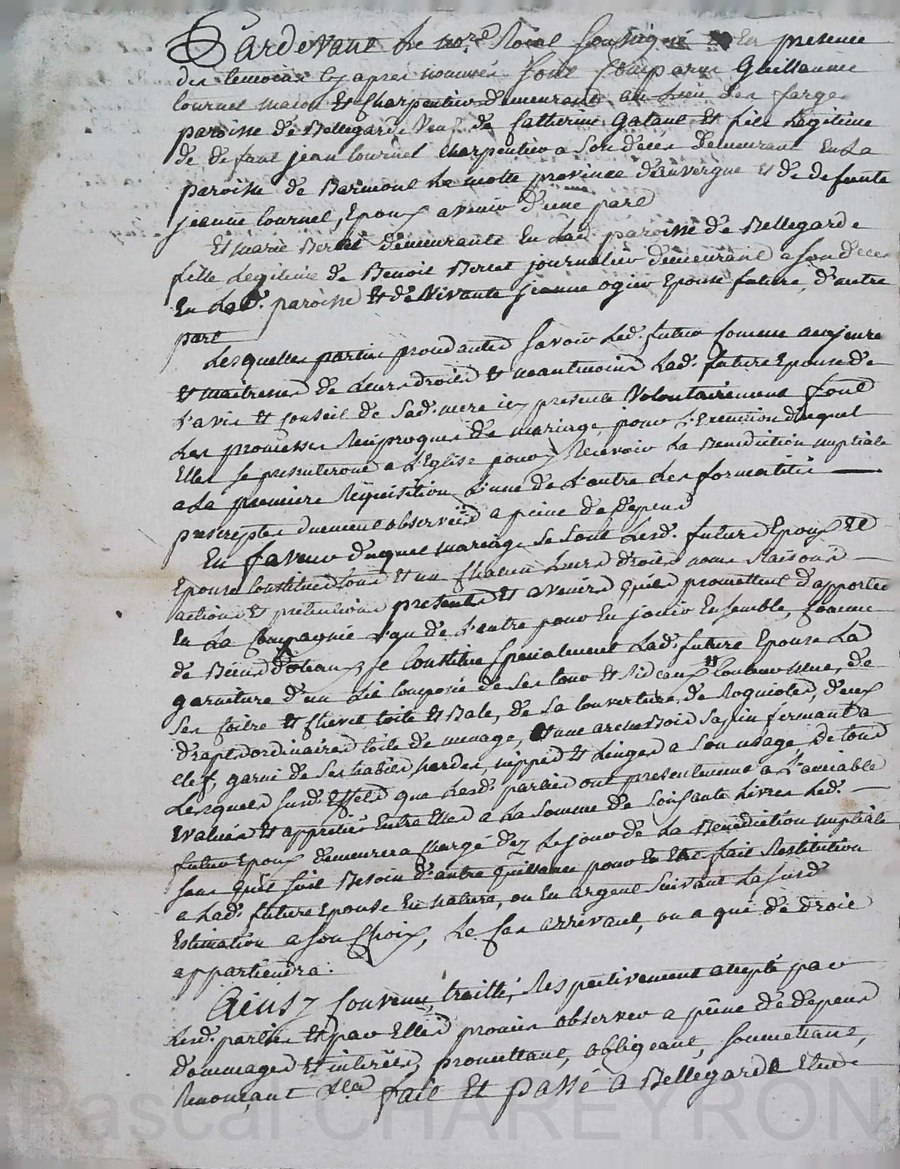 Pardevant le no.re Roial soussigné en presence
des temoins cy apres nommés sont comparus Guillaume
tournel macon et charpentier demeurant au lieu des farge
paroisse de Bellegarde veuf de Catherine Galand et fils legitime
de defunt jean tournel charpentier a son deces demeurant en la
paroisse de Barmont La motte province d'auvergne et de defunte
jeanne tournel Epoux avenir d'une part
Et marie Bernet demeurante en lad. paroisse de Bellegarde
fille legitime de Benoit Bernet journalier demeurant a son deces
en lad. paroisse et de vivante jeanne ogier Epouse future, d'autre
part
Lesquelles parties procedantes savoir led. futur comme majeure
et maitresses de leurs droits et neantmoins lad. future Epouse de
l'avis et conseil de sad. mere icy presente volontairement font
les promesses reciproques de mariage, pour l'execution duquel
Elles se presenteront a L'Eglise pour y Recevoir La Benediction nuptiale
a La premiere Requisition L'une de L'autre les formalités
prescriptes duement observées a peine de depens
En faveur duquel mariage se sont lesd. futurs Epoux et
Epouse Constitués tous et un chacun leurs droits noms Raisons
actions et pretentions presents et avenirs qu'ils promettent d'apporter
en la Compagnie l'un de l'autre pour en jouir ensemble, comme
de Biens dotaux, se constitue specialement lad. future Epouse La
garniture d'un lit composé de ses tour et Rideaux couleur, de
ses coitre et chevet toile et Bale, de sa couverture de, deux
draps d'ordinaires toile de menage, et une arche Bois sapin fermant a
clef, garni de ses habits hardes, nippes et linges a son usage de tous
Lesquels susd. Effets que lesd. parties ont presentement a L'amiable
Evalués et appretiés Entre Elles a la somme de soixante livres led.
futur Epoux demeurera chargé dez le jour de la Benediction nuptiale
sans qu'il soit Besoin d'autre quittance pour en Etre fait Restitution
a lad. future Epouse en nature, ou en argent suivant la susd.
Estimation a son choix, le cas arrivant, ou a qui de droit
appartiendra.
Ainsy convenu, traitté, Respectivement accepté par
lesd. parties et par Elles promis observer a peine de depens
dommages et interets, promettant, obligeant, soumettant,
Renonçant &ca fait et passé a Bellegarde Etude
Pascal CHAREYRON